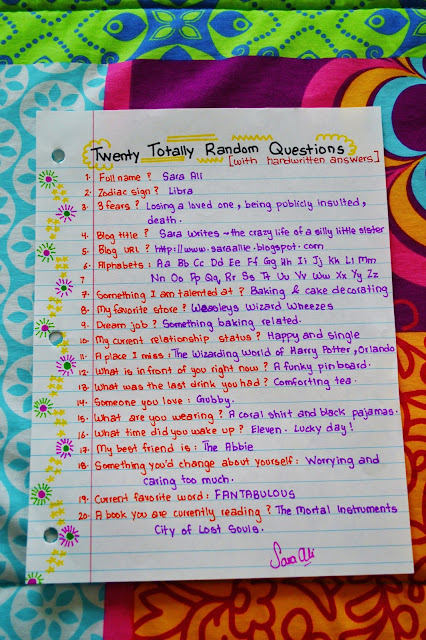 Twenty Totally Random Questions
[with handwritten answers]
1. Full name? Sara Ali
2. Zodiac sign? Libra
3. 3 fears? Losing a loved one, being publicly insulted,
death.
4. Blog title? Sara Writes - the crazy life of a silly little sister
5. Blog URL? http://www.saraallie.blogspot.com
6. Alphabets: Aa Bb Cc Dd Ee Ff Gg Hh Ii Jj Kk Ll Mm
7 Nn Oo Pp Qq Rr Ss Tt Uu Vv Ww Xx Yy Zz
7. Something I am talented at? Baking & cake decorating
8. My favorite store? Weasleys Wizard Wheezes
9. Dream job? Something baking related.
10. My current relationship status? Happy and single
11. A place I miss: The Wizarding World of Harry Potter, Orlando
12. What is in front of you right now? A funky pinboard.
13. What was the last drink you had? Comforting tea.
14. Someone you love: Gubby.
15. What are you wearing? A coral shirt and black pajamas.
16. What time did you wake up? Eleven. Lucky day!
17. My best friend is: The Abbie
18. Something you'd change about yourself: Worrying and
caring too much.
19. Current favorite word: FANTABULOUS
20. A book you are currently reading? The Mortal Instruments
City of Lost Souls.
Sara Ali